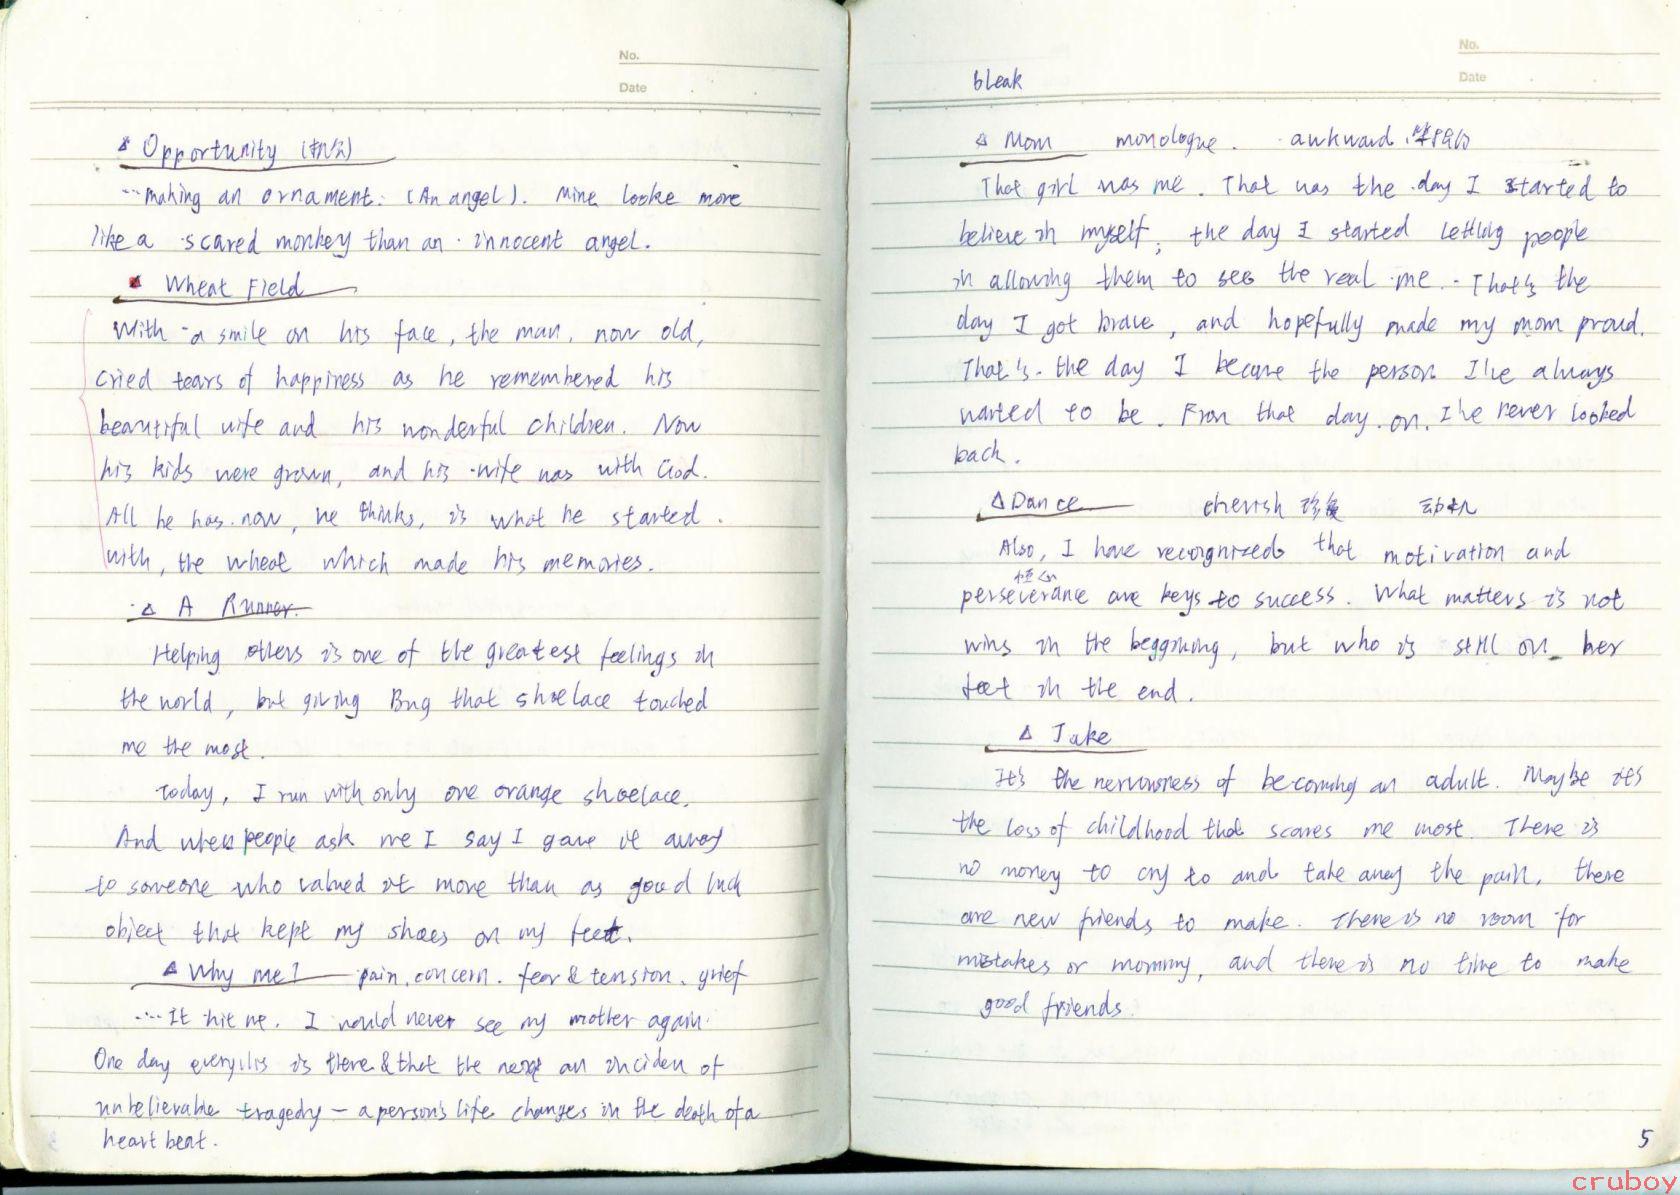 No.
Date
Δ Opportunity (机会)
...making an ornament. (An angel). Mine looke more
like a scared monkey than an innocent angel.
Δ Wheat Field
With a smile on his face, the man, now old,
cried tears of happiness as he remembered his
beautiful wife and his wonderful children. Now
his kids were grown, and his wife was with God.
All he has now, he thinks, is what he started
with, the wheat which made his memories.
Δ A Runner
Helping others is one of the greatest feelings in
the world, but giving Bug that shoelace touched
me the most.
Today, I run with only one orange shoelace.
And when people ask me I say I gave it away
to someone who valued it more than as good luck
object that kept my shoes on my feet.
Δ Why me? pain, concern. fear & tension, grief
... It hit me. I would never see my mother again.
One day is there & that the next an inciden of
unbelievable tragedy - a person's life changes in the death of a
heart beat.
No.
Date
bleak
Δ Mom monologue. awkward
That girl was me. That was the day I started to
believe in myself, the day I started letting people
in allowing them to see the real me. That's the
day I got brave, and hopefully made my mom proud.
That's the day I became the person I've always
wanted to be. From that day on, I've never looked
back.
Δ Dance cherish 珍爱 动机
Also, I have recognized that motivation and
恒心
perseverance are keys to success. What matters is not
wins in the beggining, but who is still on her
feet in the end.
Δ Jake
It's the nervousness of becoming an adult. Maybe it's
the loss of childhood that scares me most. There is
no money to cry to and take away the pain, there
are new friends to make. There is no room for
mistakes or mommy, and there is no time to make
good friends.
5
cruboy